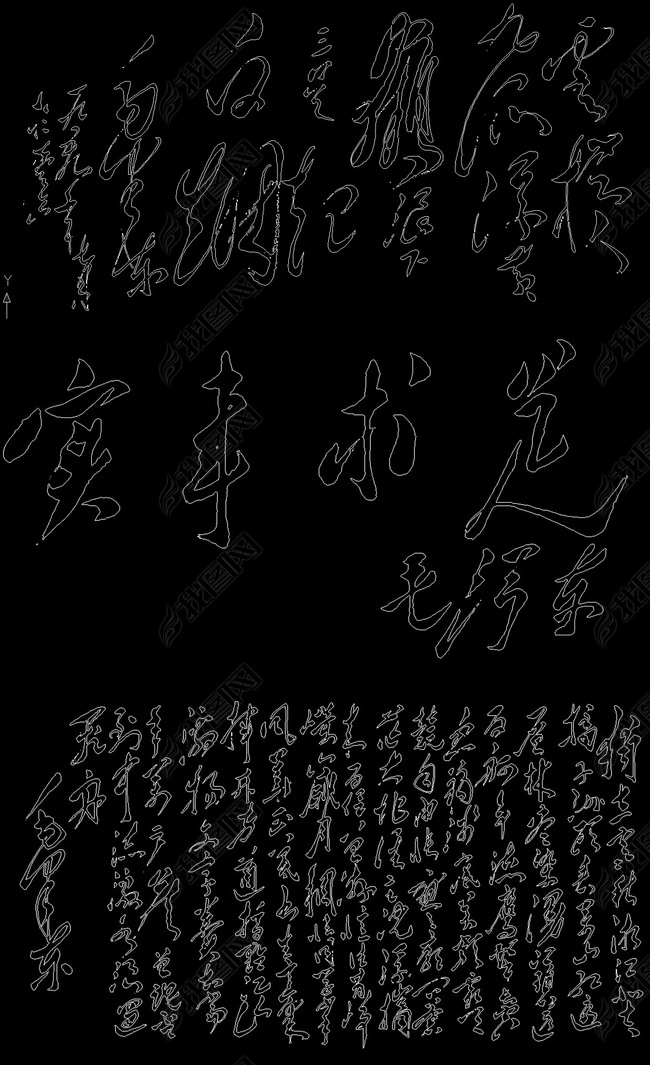 云横
九派浮黄
鹤浪下
三吴起
白烟
毛泽东
实事求是
毛泽东
独立寒秋湘江北去
橘子洲头看万山红遍
层林尽染漫江碧透
百舸争流鹰击长空
鱼翔浅底万类霜天
竞自由怅寥廓问苍
茫大地谁主沉浮携
来百侣曾游忆往昔峥
嵘岁月稠恰同学少年
风华正茂书生意气
挥斥方遒指点江山
激扬文字粪土当
年万户侯曾记否
到中流击水浪遏
飞舟
毛泽东
Y
我图网